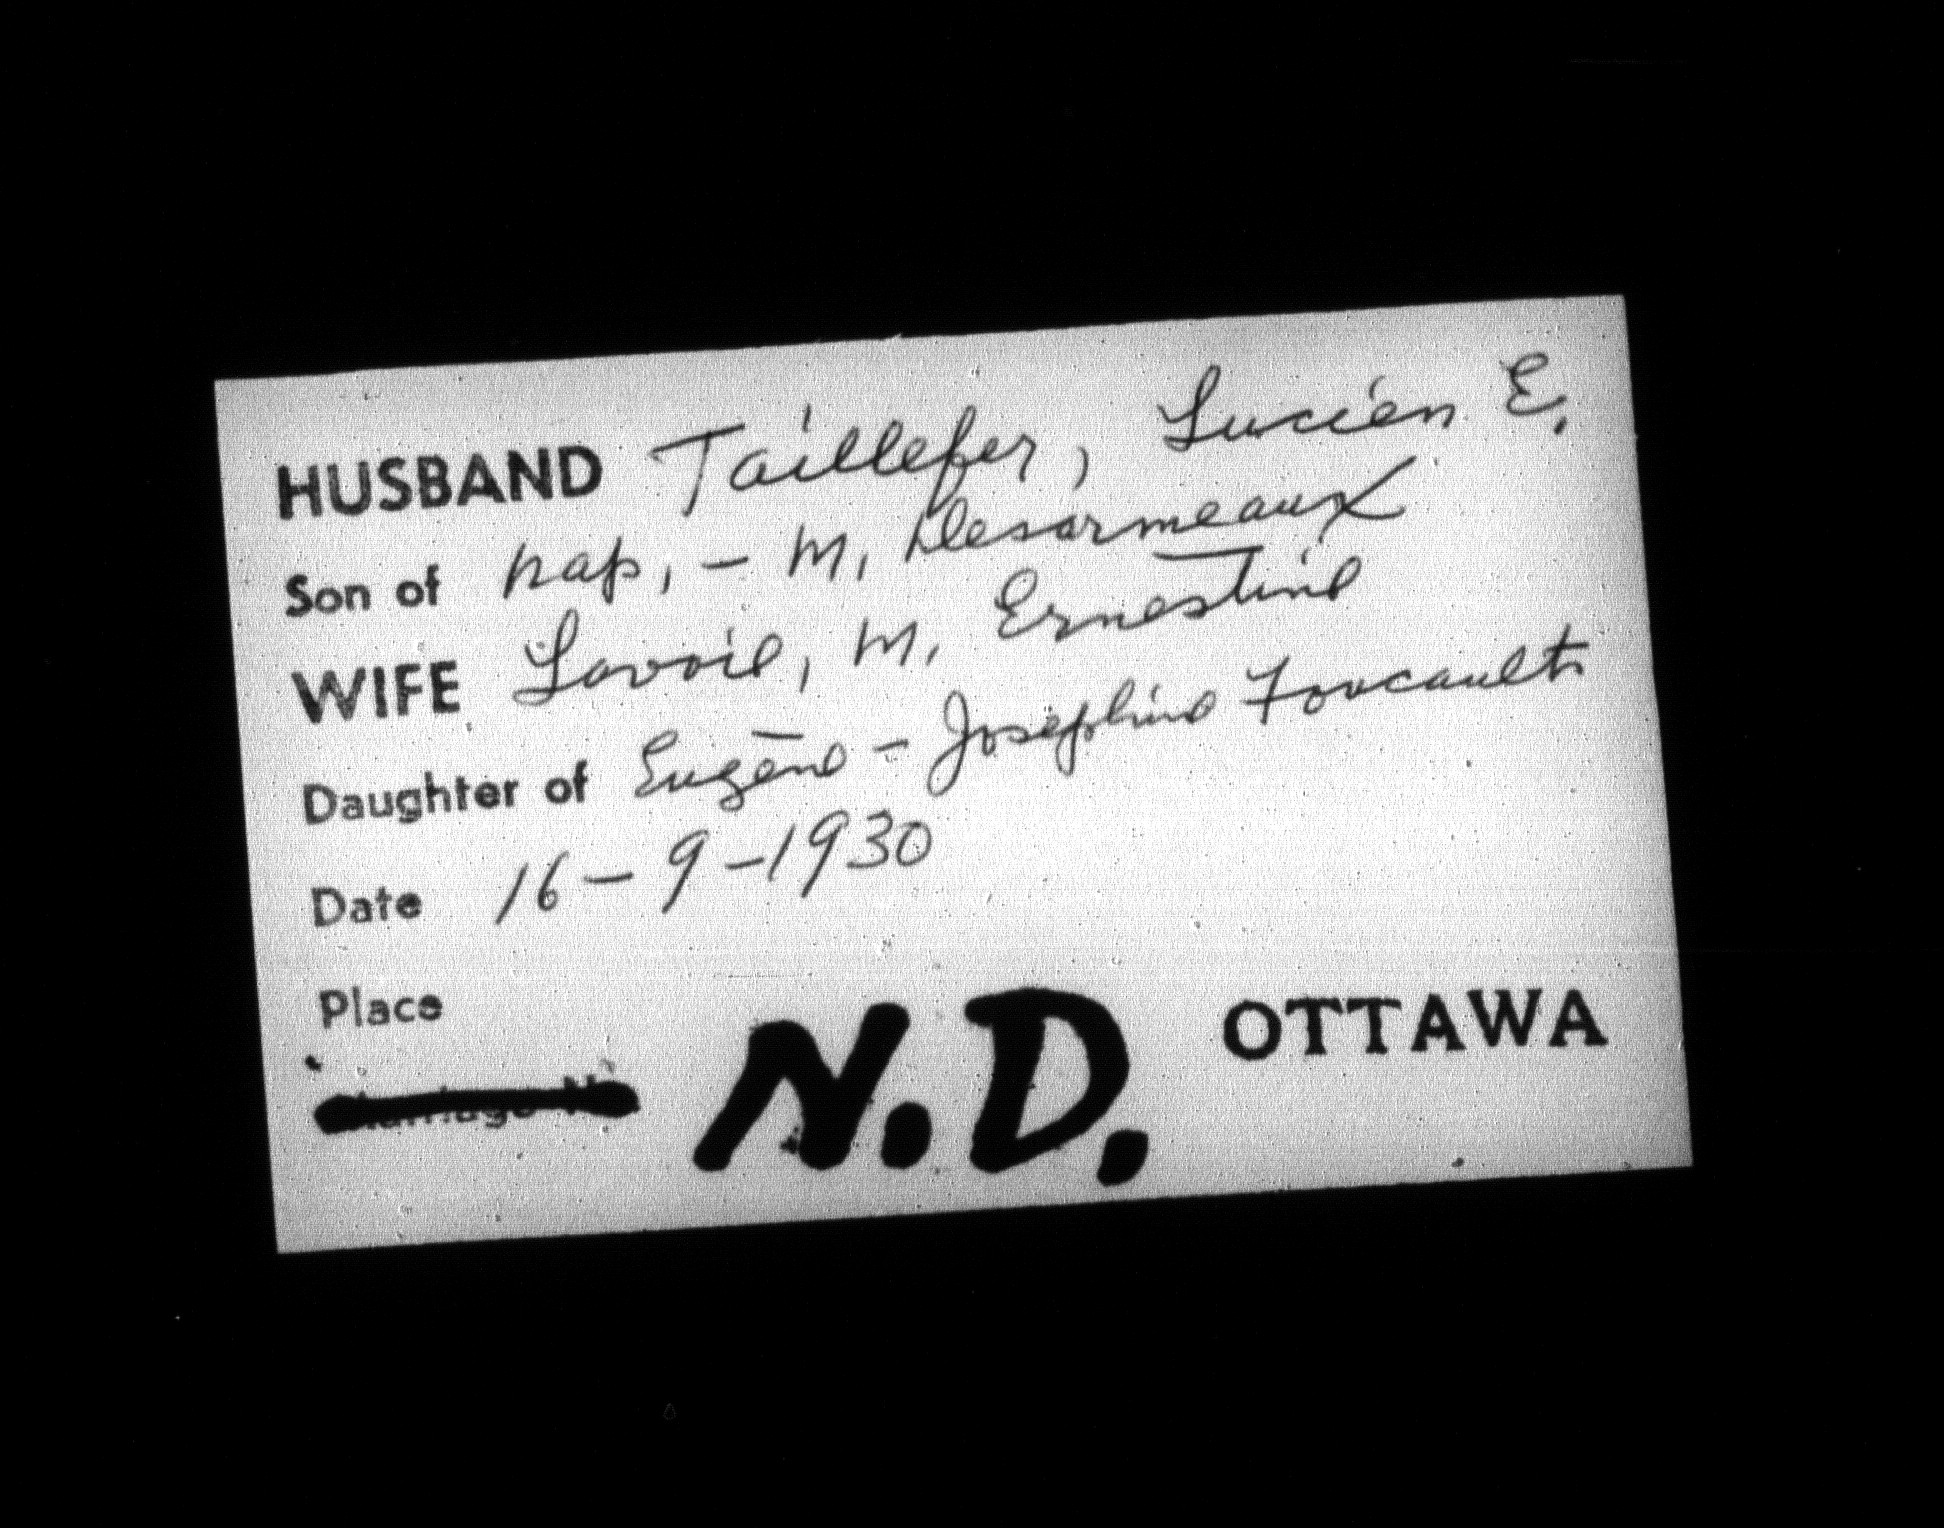 HUSBAND Taillefer, Lucien E.
Son of Nap, - M, Desarmeaux
WIFE Lavoie, M, Ernestine
Daughter of Eugène - Josephine Foucault
Date 16-9-1930
Place
N.D. OTTAWA
Marriage No